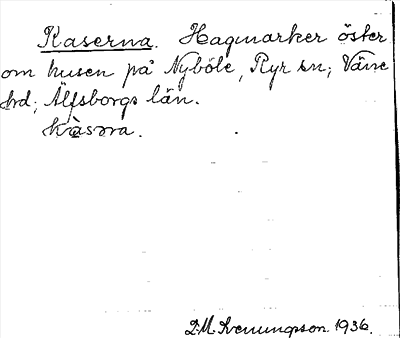 Kaserna. Hagmarker öster
om husen på Nyböle, Ryr sn; Väne
hd; Älfsborgs län.
D.M. Svenungsson. 1936.